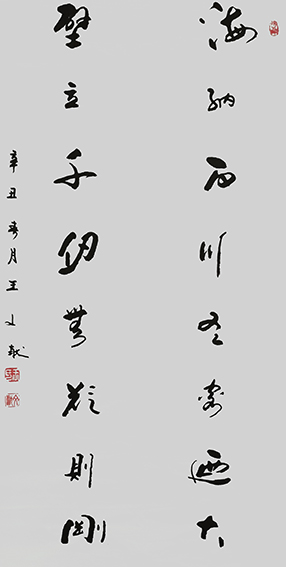 海納百川有容迺大
壁立千仞無欲則剛
辛丑春月王文